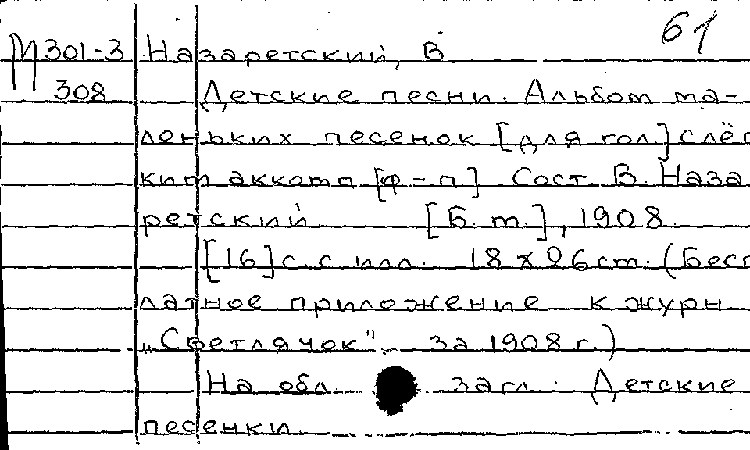 61
М301-3 Назаретский, В
308 Детские песни. Альбом ма-
леньких песенок [для гол] с лёг
ким аккомп [ф-п] Сост. В. Наза
ретский [Б. м.], 1908.
[16] с с илл. 18 х 26 см. (Бесп
латное приложение к журн
„Светлячок" за 1908 г.)
На обл. загл.: Детские
песенки.